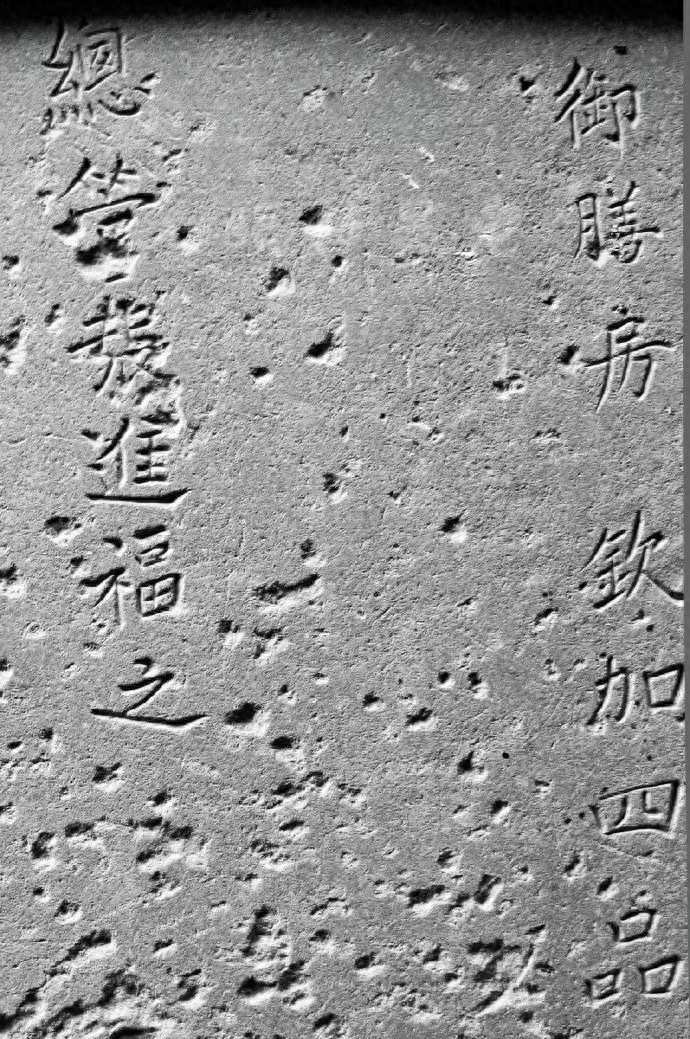 御膳房 欽加四品
總管裴進福之